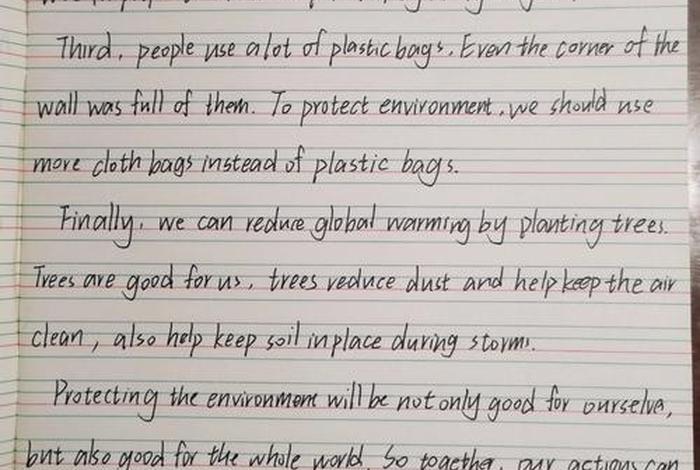 Third, people use a lot of plastic bags. Even the corner of the
wall was full of them. To protect environment, we should use
more cloth bags instead of plastic bags.
Finally, we can reduce global warming by planting trees.
Trees are good for us, trees reduce dust and help keep the air
clean, also help keep soil in place during storms.
Protecting the environment will be not only good for ourselve,
but also good for the whole world. So together, our actions can